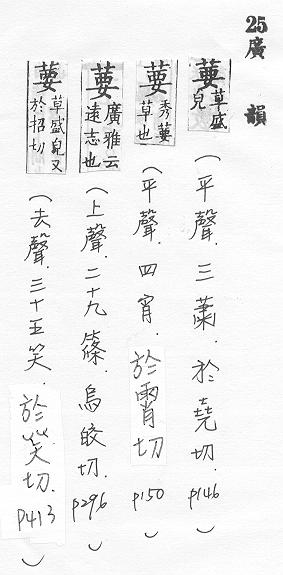 25廣韻
葽草盛皃(平聲.三蕭.於堯切.p146)
葽秀葽草也(平聲.四宵.於霄切p150)
葽廣雅云遠志也(上聲.二十九篠.烏皎切.p296)
葽草盛皃又於招切(去聲.三十五笑.於笑切.p413)